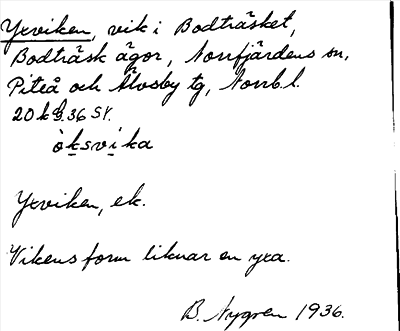 Yxviken, vik i Bodträsket,
Bodträsk ägor, Norrfjärdens sn,
Piteå och Älvsby tg, Norrb. l.
20 k 36 SV.
òksvika
Yxviken, ek.
Vikens form liknar en yxa.
B. Nygren 1936.